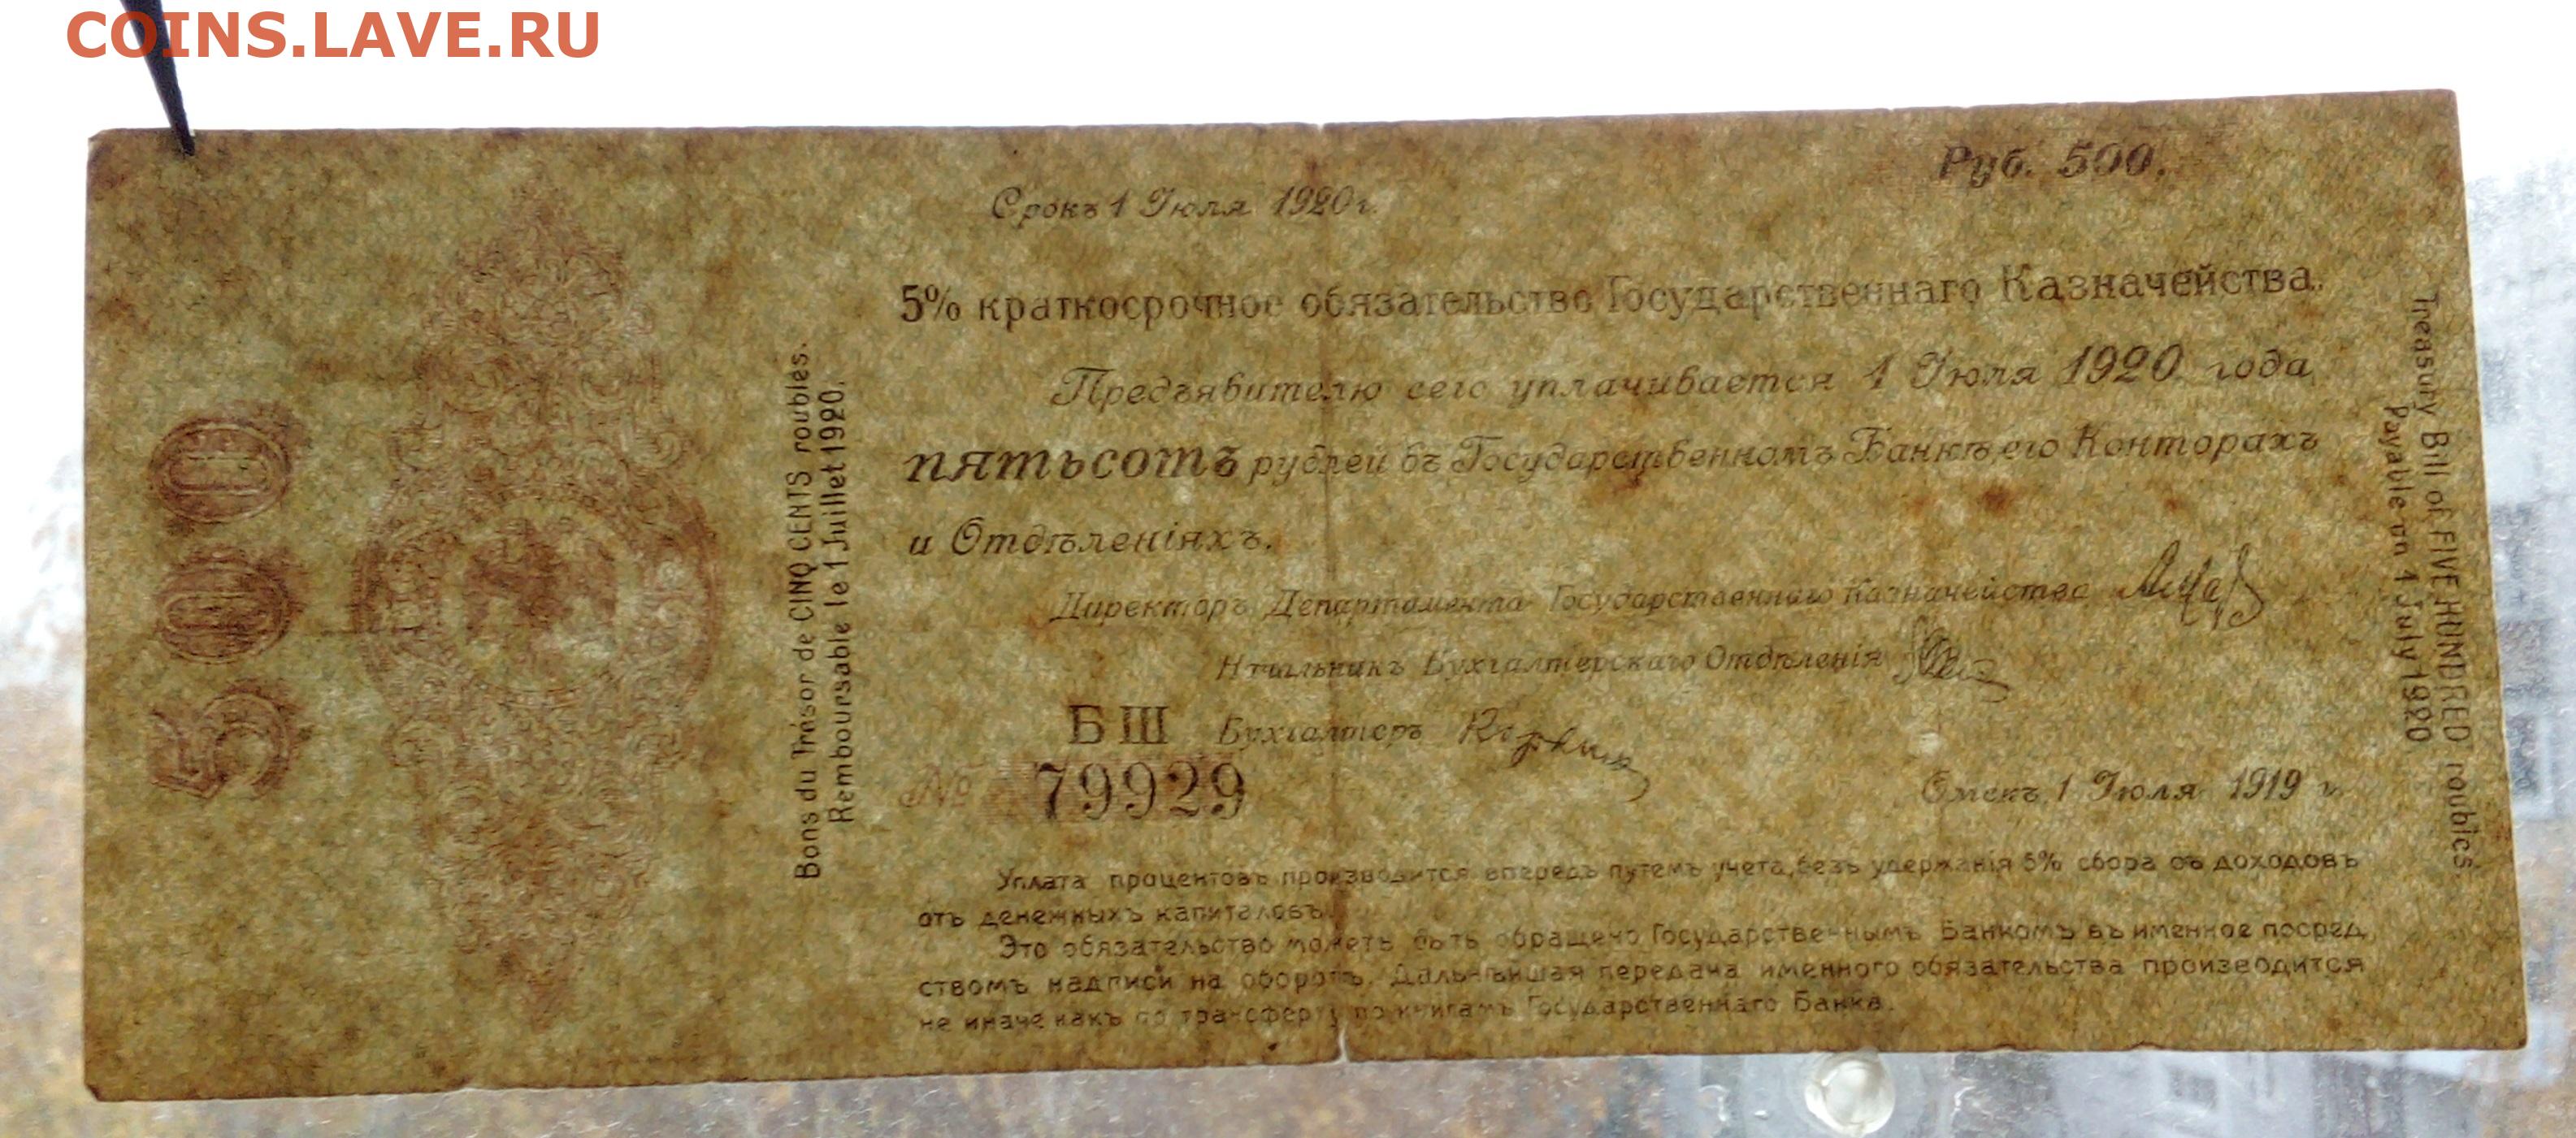 COINS.LAVE.RU
Руб. 500.
Срокъ 1 Іюля 1920 г.
5% краткосрочное обязательство Государственнаго Казначейства.
Предъявителю сего уплачивается 1 Іюля 1920 года
пятьсотъ рублей въ Государственномъ Банкѣ его Конторахъ
и Отдѣленіяхъ.
Директоръ Департамента Государственнаго Казначейства
Начальникъ Бухгалтерскаго Отдѣленія
БШ Бухгалтеръ
№ 79929
Омскъ, 1 Іюля 1919 г.
Уплата процентовъ производится впередъ путемъ учета, безъ удержанія 5% сбора съ доходовъ
отъ денежныхъ капиталовъ.
Это обязательство можетъ быть обращено Государственнымъ Банкомъ въ именное посред
ствомъ надписи на оборотѣ. Дальнѣйшая передача именного обязательства производится
не иначе какъ по трансферту по книгамъ Государственнаго Банка.
500
Bons du Trésor de CINQ CENTS roubles.
Remboursable le 1 Juillet 1920.
Treasury Bill of FIVE HUNDRED roubles
Payable on 1 July 1920